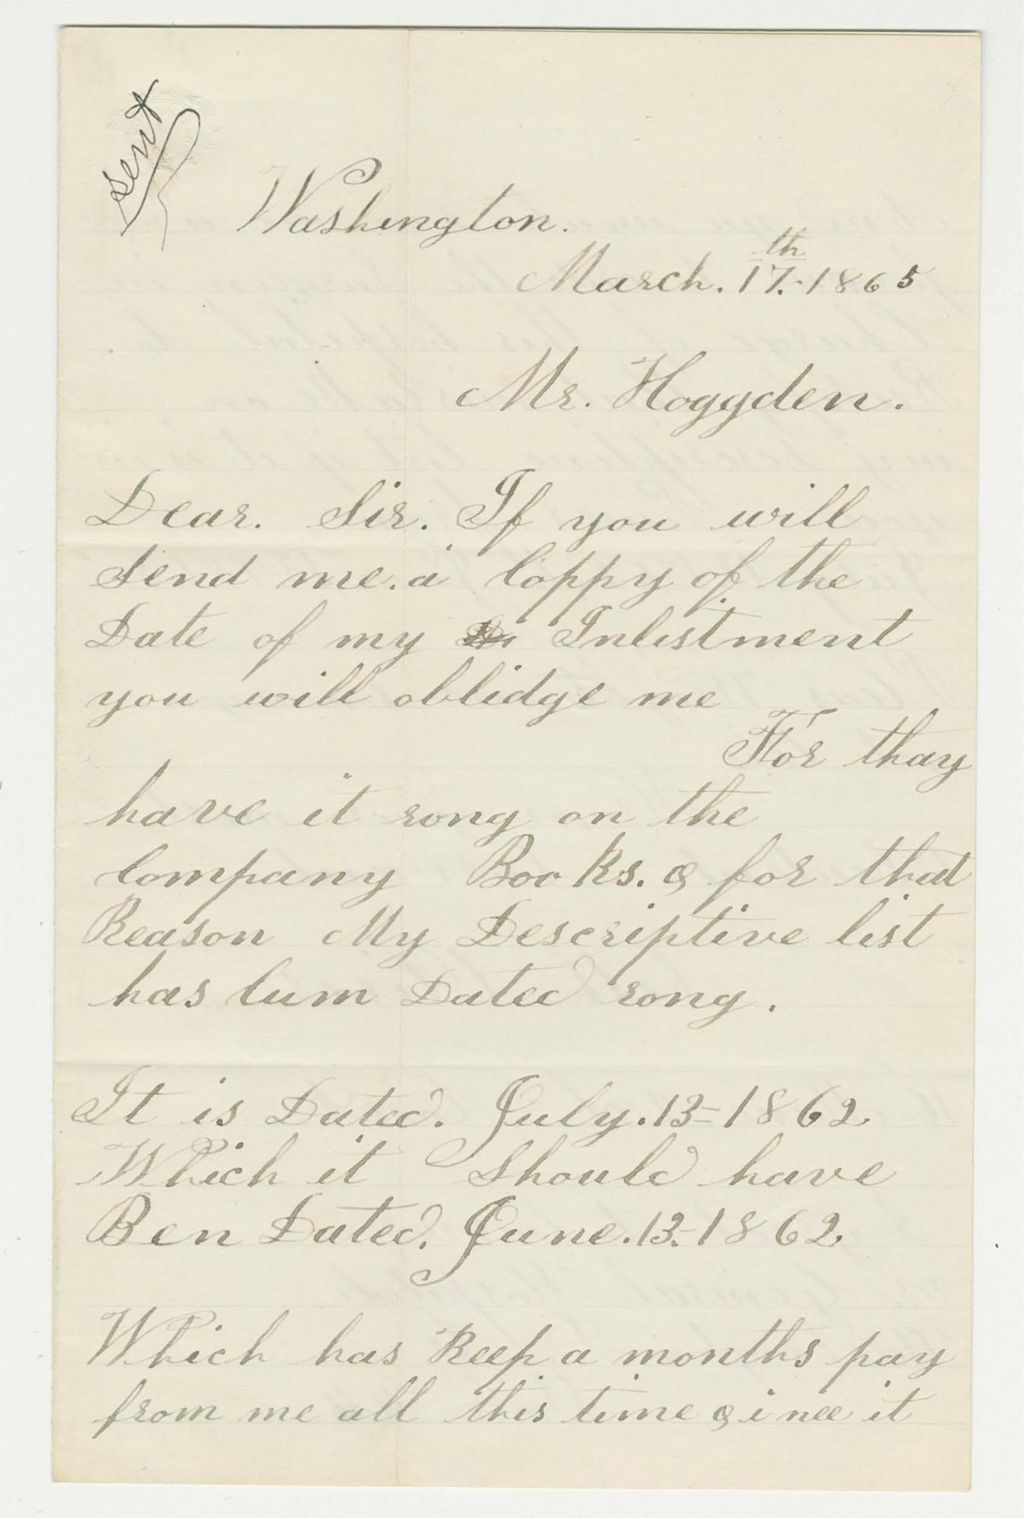 sent
Washington.
March. 17.th - 1865
Mr. Hoggden.
Dear. Sir. If you will
Send me. a Coppy of the
Date of my Inlistment
you will oblidge me
For thay
have it rong on the
Company Books. & for that
Reason My Descriptive list
has Cum Dated rong.
It is Dated. July. 13 - 1862
Which it Should have
Ben Dated. June. 13. - 1862
Which has Keep a months pay
from me all this time & i nee it